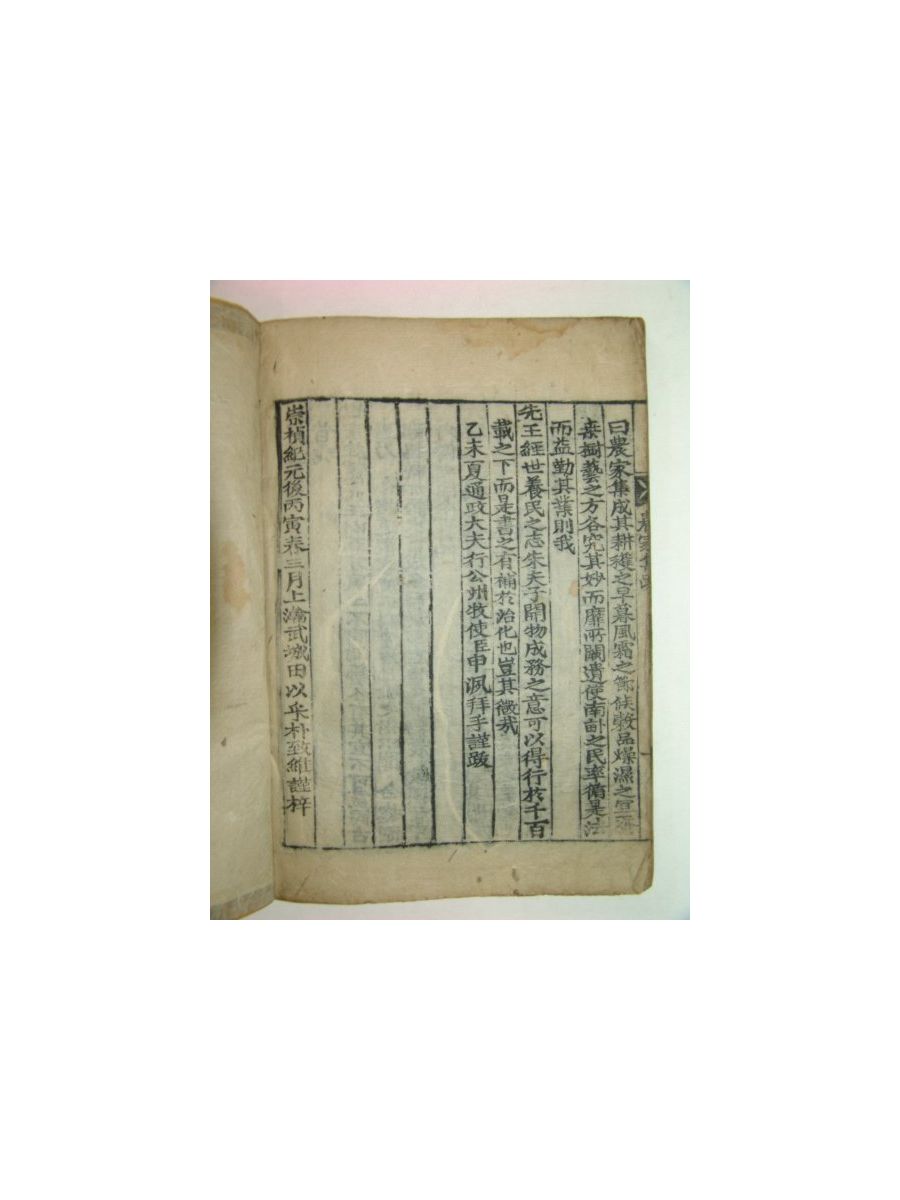 曰農家集成其耕穫之早暮風霜之節候穀品燥濕之宜
桒樹藝之方各究其妙而靡所闕遺使南畝之民率循是法
而益勤其業則我
先王經世養民之志朱夫子開物成務之意可以得行於千百
載之下而是書之有補於治化也豈其微哉
乙未夏通政大夫行公州牧使臣申洬拜手謹跋
崇禎紀元後丙寅春三月上澣武城田以采朴致維謹梓
農家集成